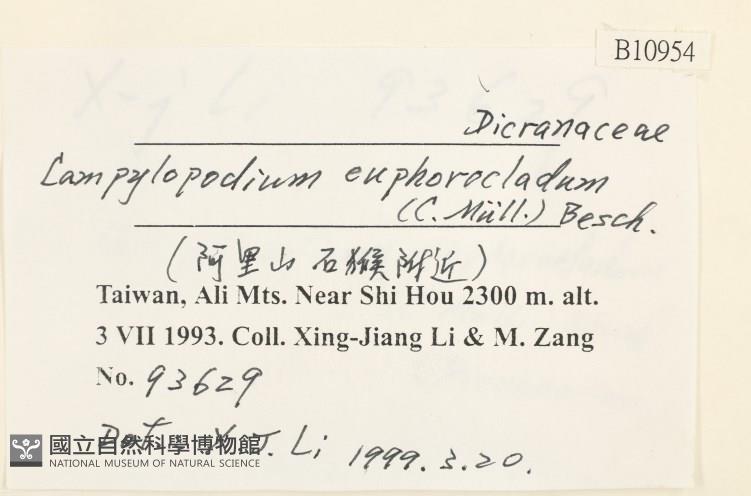 B10954
Dicranaceae
Campylopodium euphorocladum
(C. Müll.) Besch.
(阿里山 石猴附近)
Taiwan, Ali Mts. Near Shi Hou 2300 m. alt.
3 VII 1993. Coll. Xing-Jiang Li & M. Zang
No. 93629
Det. X. J. Li 1999. 3. 20.
國立自然科學博物館
NATIONAL MUSEUM OF NATURAL SCIENCE